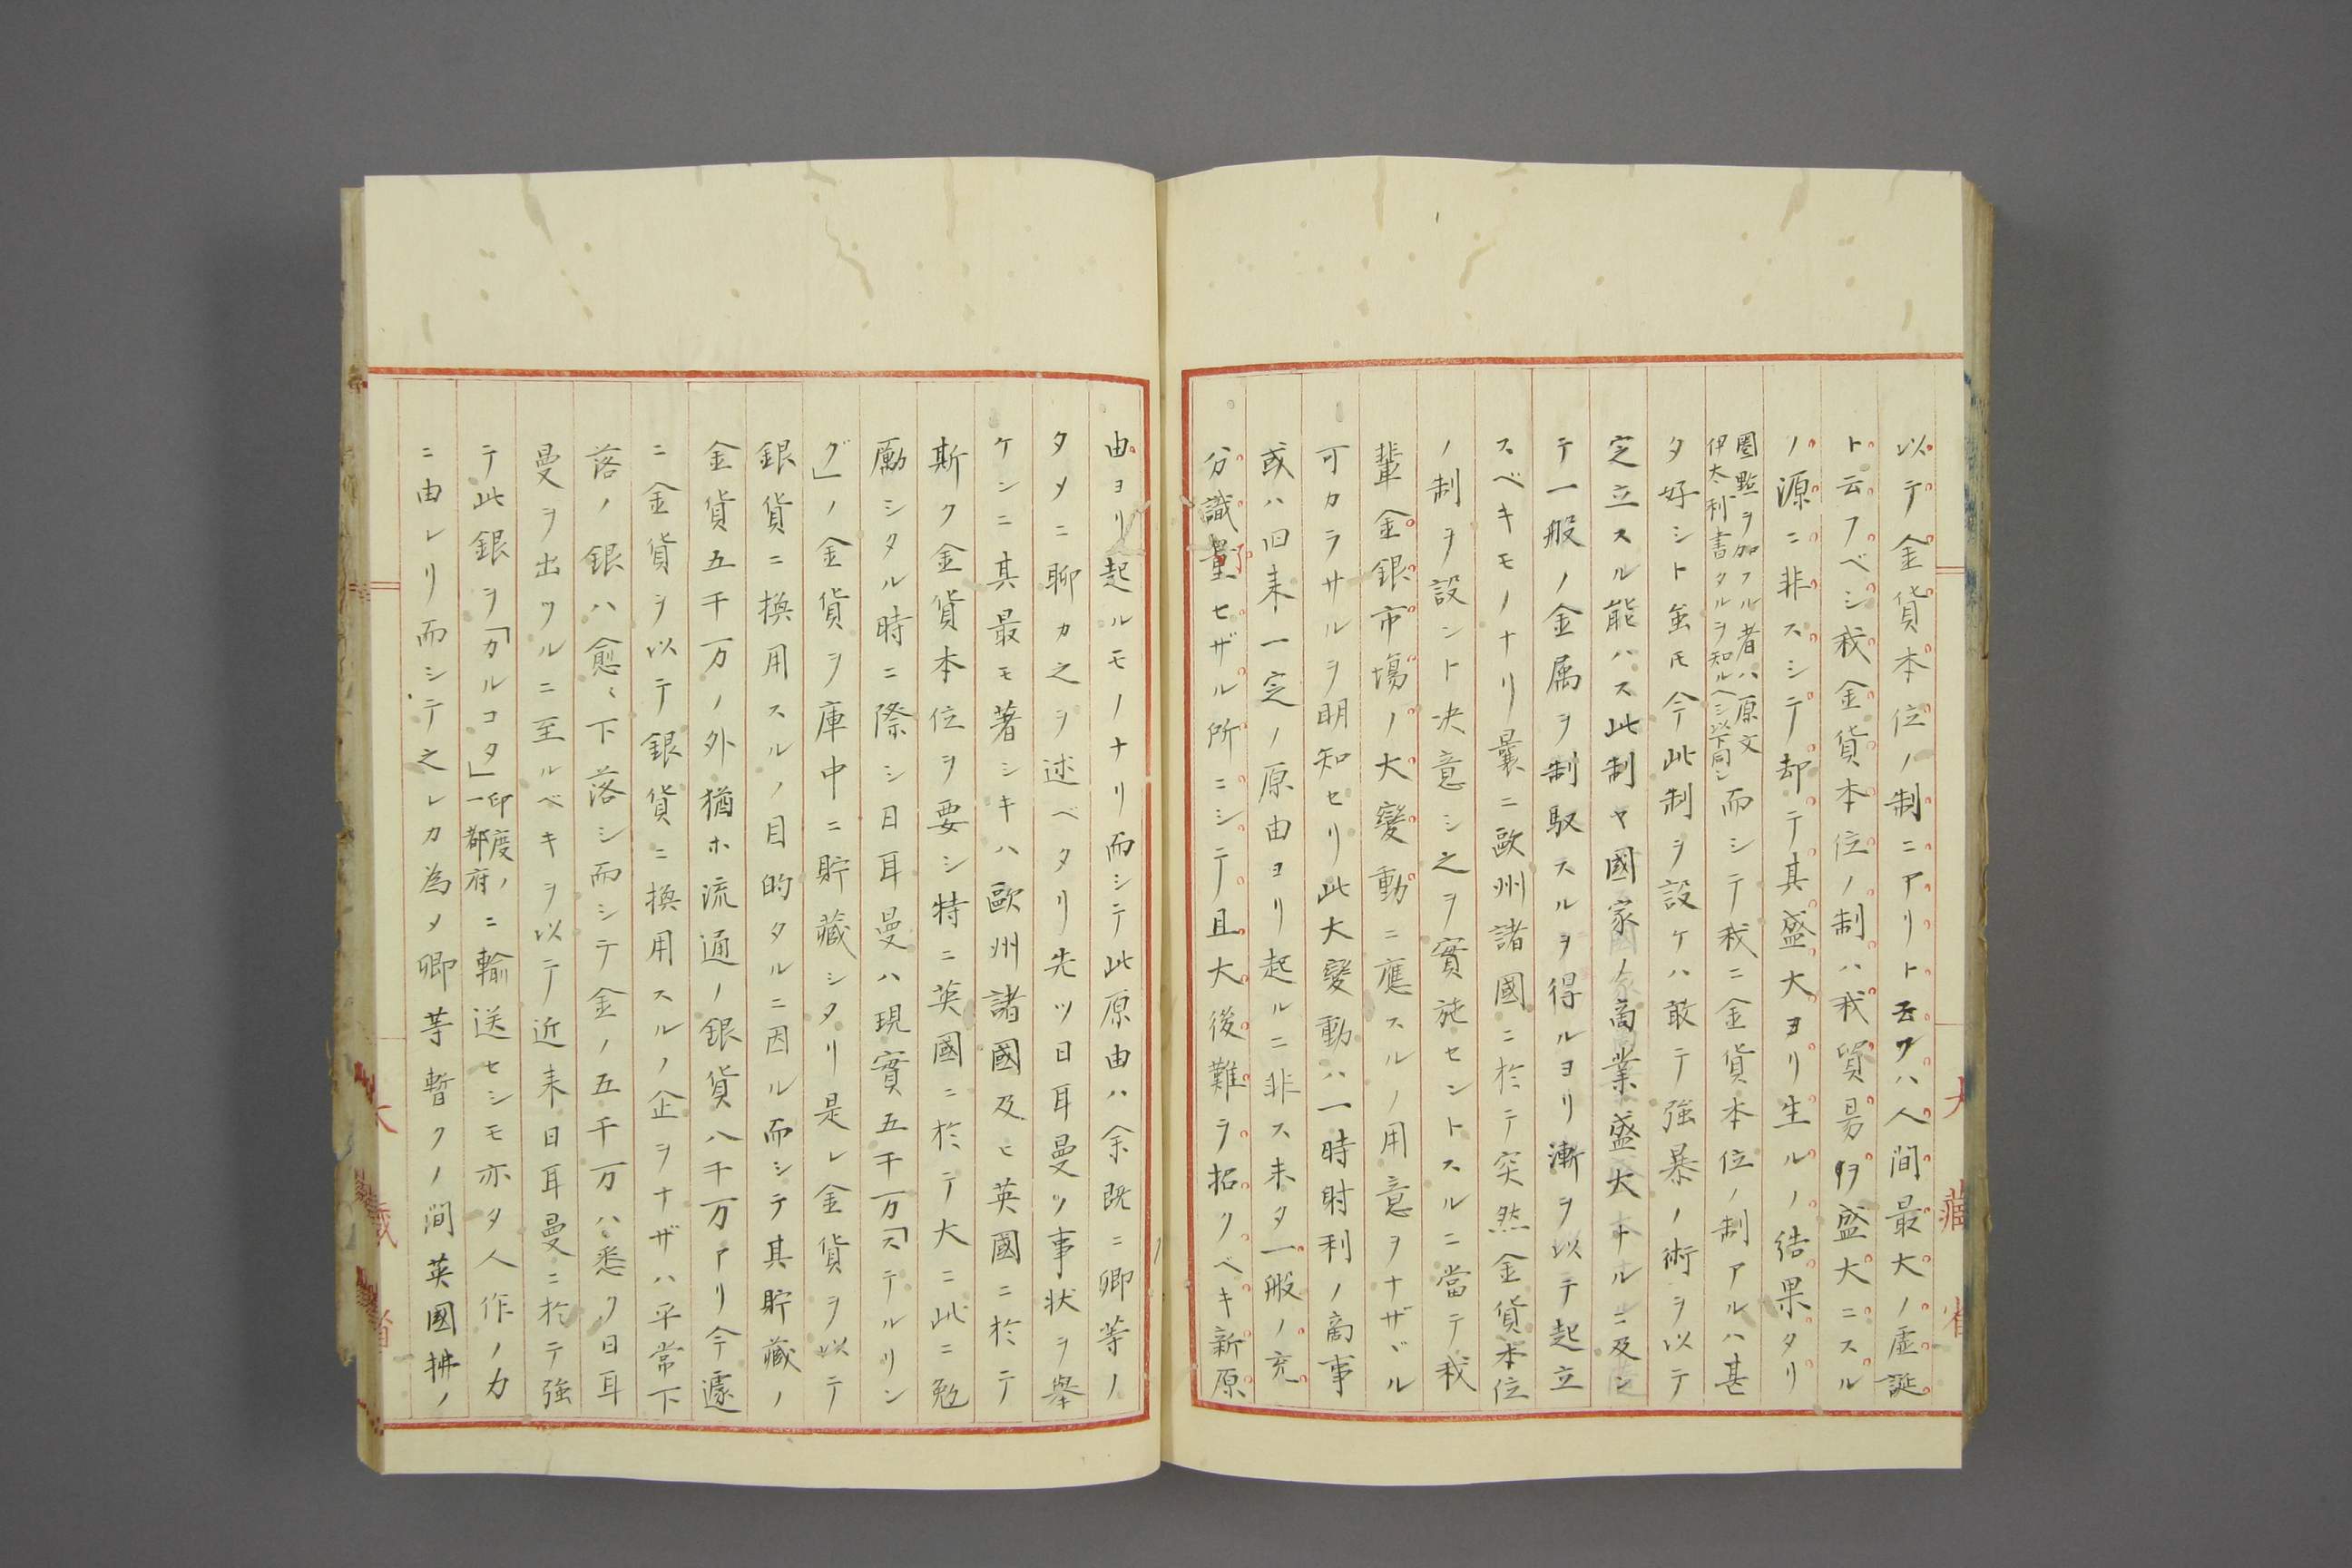 以テ金貨本位ノ制ニアリト云フハ人間最大ノ虚誕
ト云フベシ我金貨本位ノ制ハ我貿易ヲ盛大ニスル
ノ源ニ非スシテ却テ其盛大ヨリ生ルノ結果タリ
圏點ヲ加フル者ハ原文
伊太利書タルヲ知ルヘシ以下同シ
而シテ我ニ金貨本位ノ制アルハ甚
タ好シト虽モ今此制ヲ設ケハ敢テ強暴ノ術ヲ以テ
定立スル能ハス此制ヤ國家ノ商業盛大ナルニ及ン
テ一般ノ金属ヲ制馭スルヲ得ルヨリ漸ヲ以テ起立
スベキモノナリ曩ニ歐州諸國ニ於テ突然金貨本位
ノ制ヲ設ント决意シ之ヲ實施セントスルニ當テ我
輩金銀市塲ノ大變動ニ應スルノ用意ヲナザヾル
可カラサルヲ明知セリ此大変動ハ一時射利ノ商事
或ハ旧来一定ノ原由ヨリ起ルニ非ス未タ一般ノ充
分識量セザル所ニシテ且大後難ヲ招クベキ新原
由ヨリ起ルモノナリ而シテ此原由ハ余既ニ卿等ノ
タメニ聊カ之ヲ述ベタリ先ツ日耳曼ツ事状ヲ擧
ケンニ其最モ著シキハ歐州諸國及ヒ英國ニ於テ
斯ク金貨本位ヲ要シ特ニ英國ニ於テ大ニ此ニ勉
励シタル時ニ際シ日耳曼ハ現實五千万「ステルリン
グ」ノ金貨ヲ庫中ニ貯藏シタリ是レ金貨ヲ以テ
銀貨ニ換用スルノ目的タルニ因ル而シテ其貯藏ノ
金貨五千万ノ外猶ホ流通ノ銀貨八千万アリ今遽
ニ金貨ヲ以テ銀貨ニ換用スルノ企ヲナザハ平常下
落ノ銀ハ愈〻下落シ而シテ金ノ五千万ハ悉ク日耳
曼ヲ出ツルニ至ルベキヲ以テ近来日耳曼ニ於テ強
テ此銀ヲ「カルコタ」
印度ノ
一都府
ニ輸送セシモ亦タ人作ノ力
ニ由レリ而シテ之レカ為メ卿等暫クノ間英國拂ノ
大藏省
大藏省